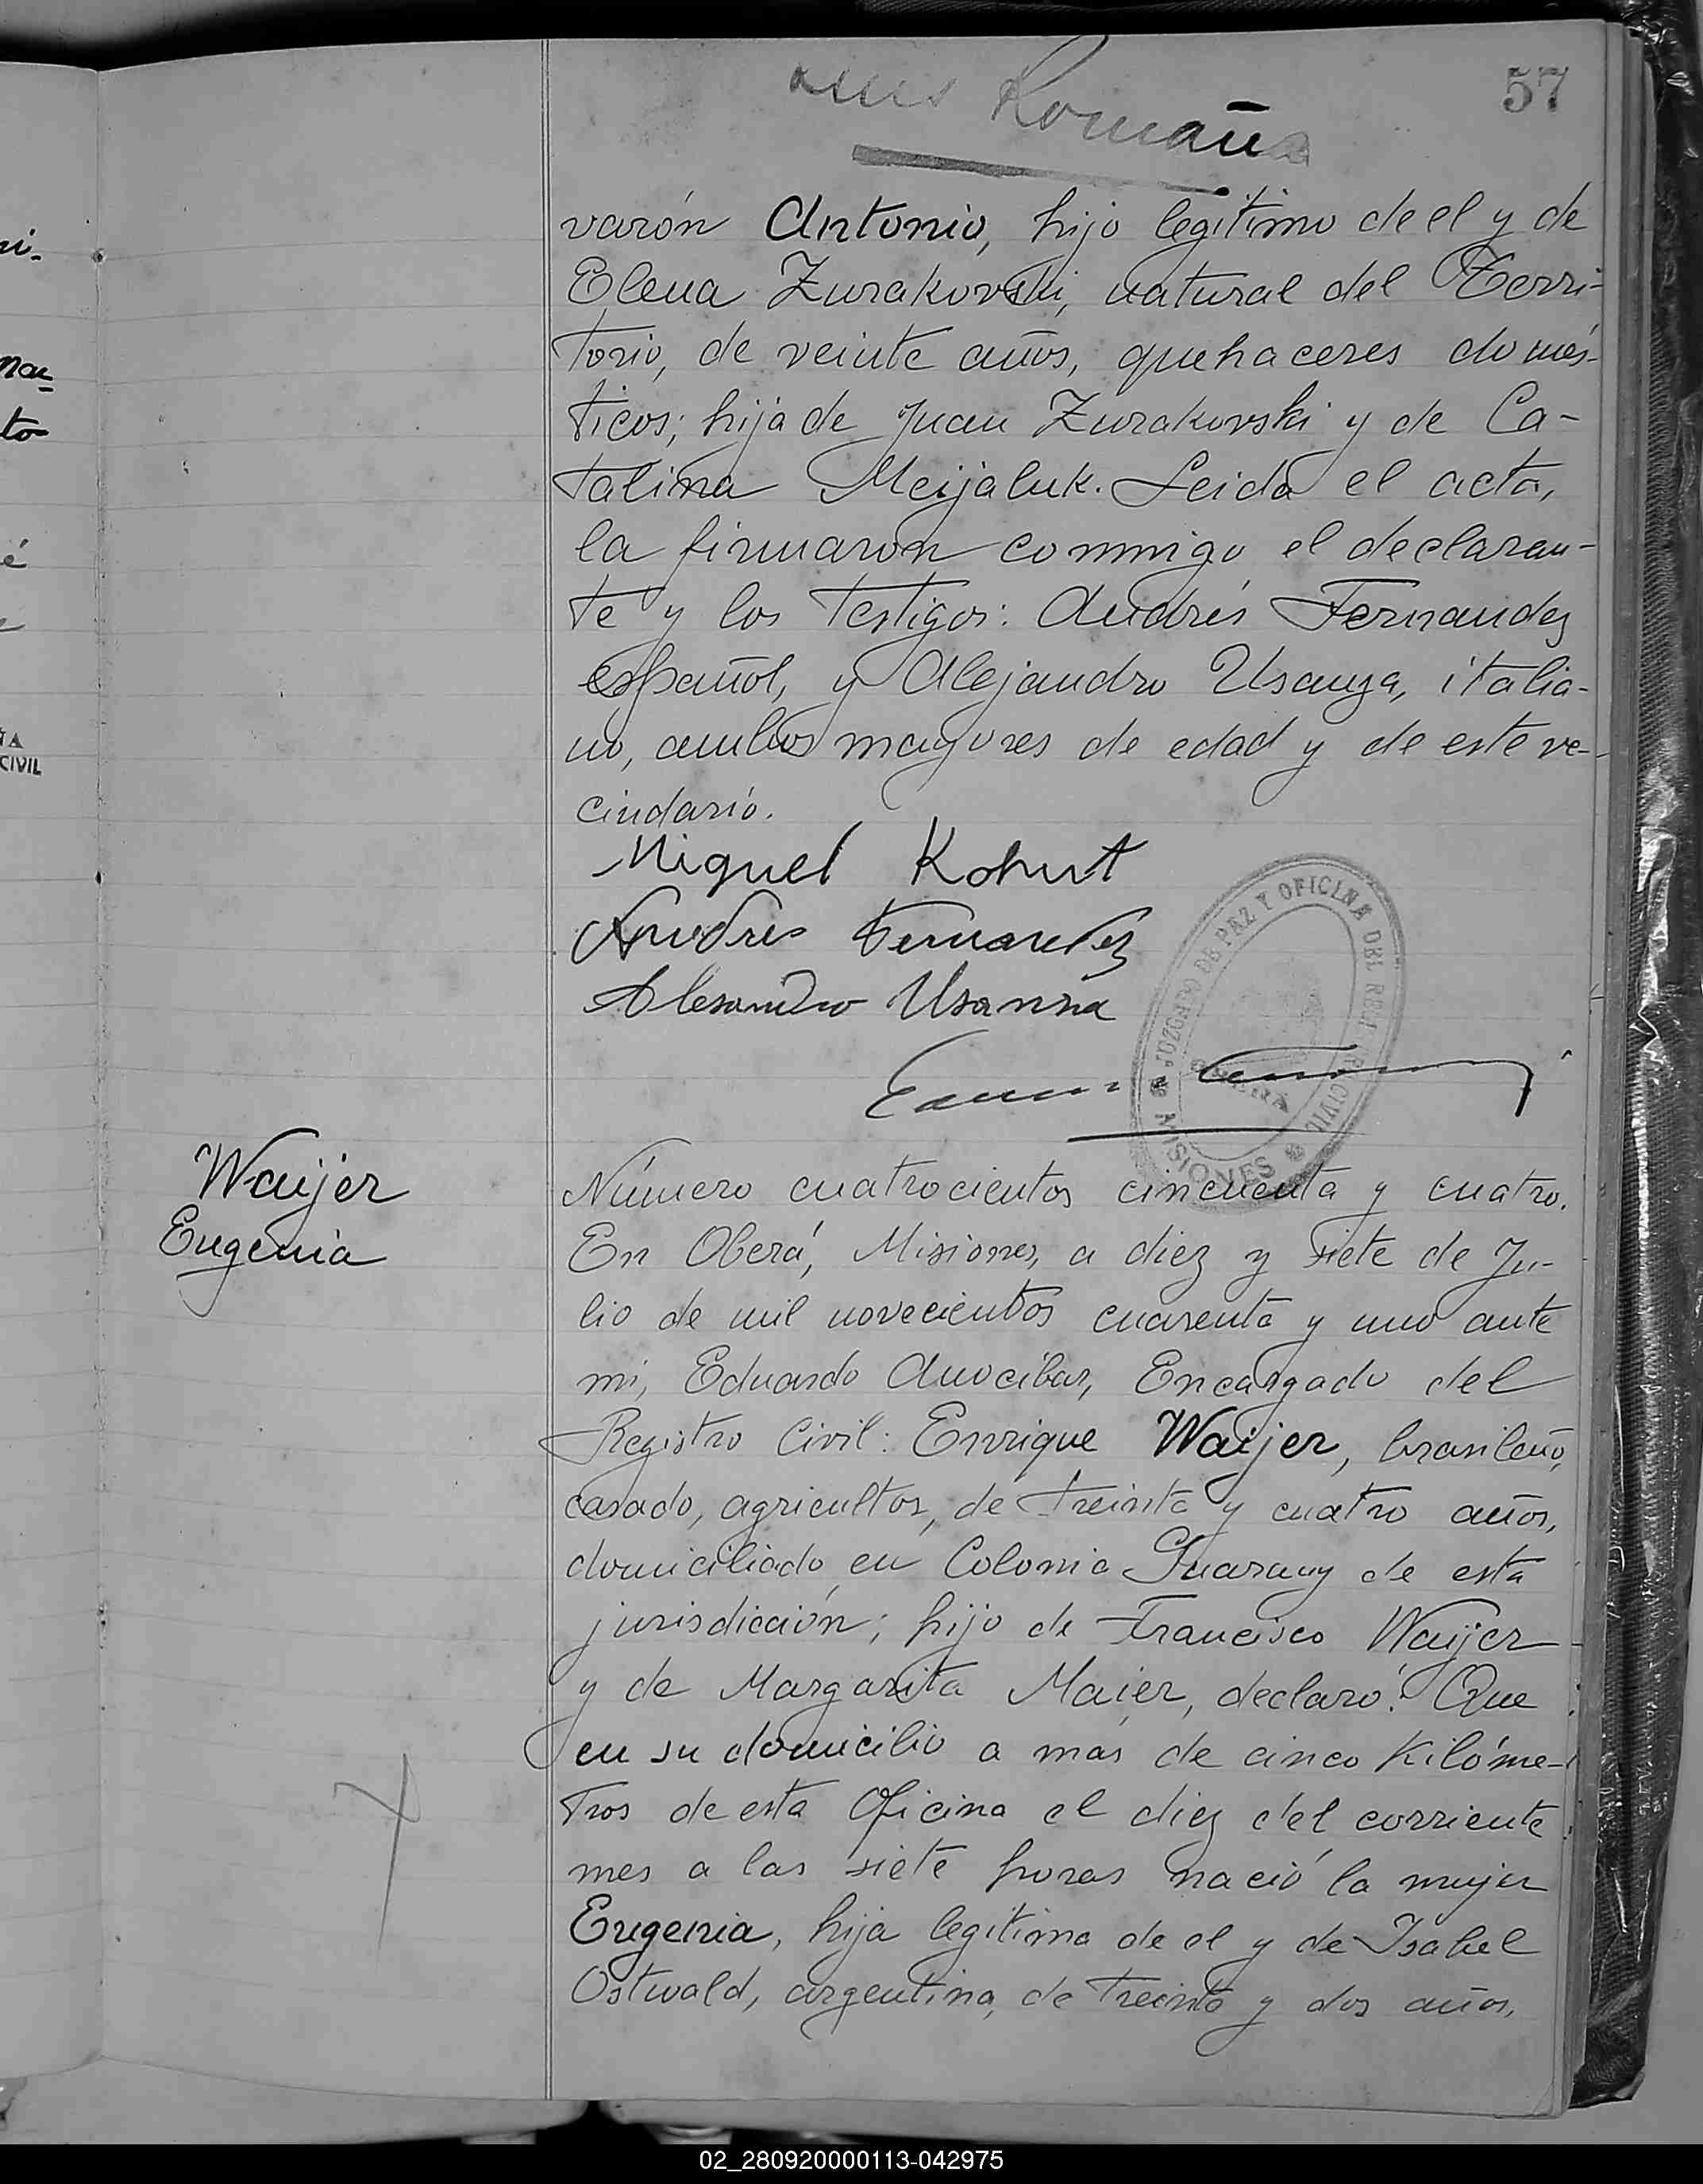 57
Romaña
varón Antonio, hijo legítimo de el y de
Elena Zurakovski, natural del Terri-
torio, de veinte años, quehaceres domés-
ticos; hija de Juan Zurakovski y de Ca-
talina Meijaluk. Leida el acta,
la firmaron conmigo el declaran-
te y los testigos: Andrés Fernandez
español, y Alejandro Usanza, italia-
no, ambos mayores de edad y de este ve-
cindario.
Miguel Kohut
Andres Fernandez
Alesandro Usanna
JUZGADO DE PAZ Y OFICINA DEL REGISTRO CIVIL
OBERÁ
MISIONES
Waijer
Eugenia
Número cuatrocientos cincuenta y cuatro.
En Oberá, Misiones, a diez y siete de Ju-
lio de mil novecientos cuarenta y uno ante
mi, Eduardo Anocibar, Encargado del
Registro Civil: Enrique Waijer, brasileño,
casado, agricultor, de treinta y cuatro años,
domiciliado en Colonia Guarany de esta
jurisdicción; hijo de Francisco Waijer
y de Margarita Maier, declaró: Que
en su domicilio a más de cinco Kilóme-
tros de esta Oficina el diez del corriente
mes a las siete horas nació la mujer
Eugenia, hija legítima de el y de Isabel
Ostwald, argentina, de treinta y dos años,
ri-
nar
to
é
ÑA
CIVIL
02_280920000113-042975